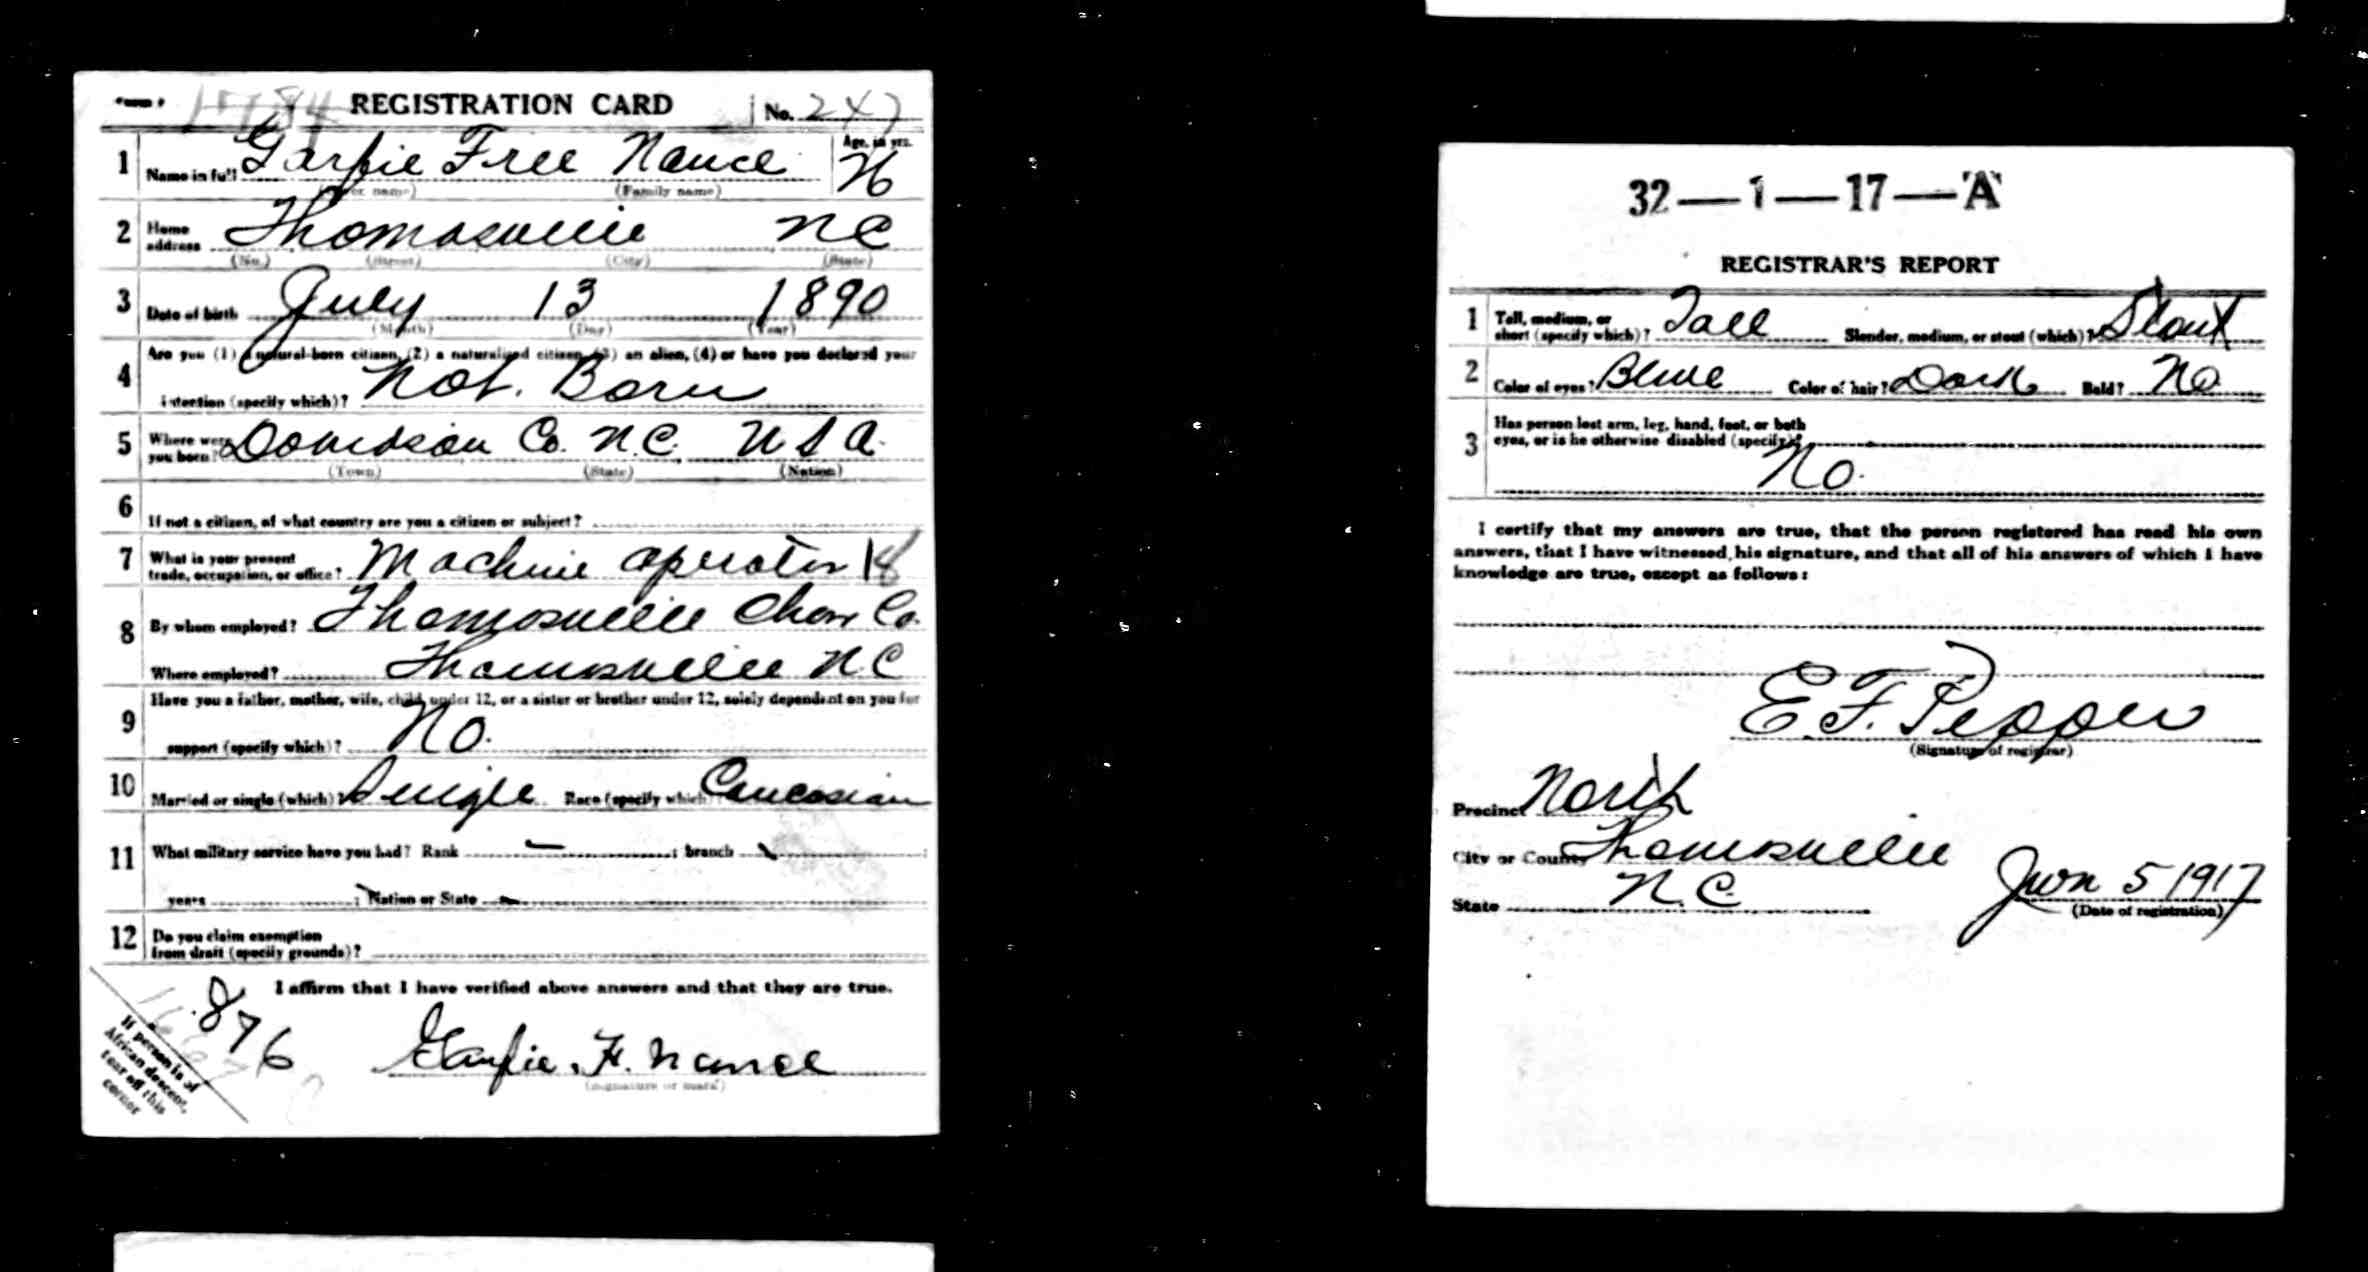 REGISTRATION CARD No. 247
1 Name in full Garfie Free Nance Age, in yrs. 26
(Family name)
2 Home address Thomasville NC
(No.) (Street) (City) (State)
3 Date of birth July 13 1890
(Month) (Day) (Year)
4 Are you (1) a natural-born citizen, (2) a naturalized citizen, (3) an alien, (4) or have you declared your
intention (specify which)? Nat. Born
5 Where were you born? Davidson Co. N.C. U S A.
(Town) (State) (Nation)
6 If not a citizen, of what country are you a citizen or subject?
7 What is your present trade, occupation, or office? Machine operator 18
8 By whom employed? Thomasville Chair Co.
Where employed? Thomasville N.C
9 Have you a father, mother, wife, child under 12, or a sister or brother under 12, solely dependent on you for
support (specify which)? No.
10 Married or single (which)? Single Race (specify which)? Caucasian
11 What military service have you had? Rank — ; branch
years ; Nation or State
12 Do you claim exemption from draft (specify grounds)?
I affirm that I have verified above answers and that they are true.
876
Garfie. F. Nance
(Signature or mark)
If person is of
African descent,
tear off this
corner
32—1—17—A
REGISTRAR'S REPORT
1 Tall, medium, or short (specify which)? Tall Slender, medium, or stout (which)? Stout
2 Color of eyes? Blue Color of hair? Dark Bald? No
3 Has person lost arm, leg, hand, foot, or both
eyes, or is he otherwise disabled (specify)?
No.
I certify that my answers are true, that the person registered has read his own
answers, that I have witnessed his signature, and that all of his answers of which I have
knowledge are true, except as follows:
E.F. Pepper
(Signature of registrar)
Precinct North
City or County Thomasville
State N.C. Jun 5 1917
(Date of registration)